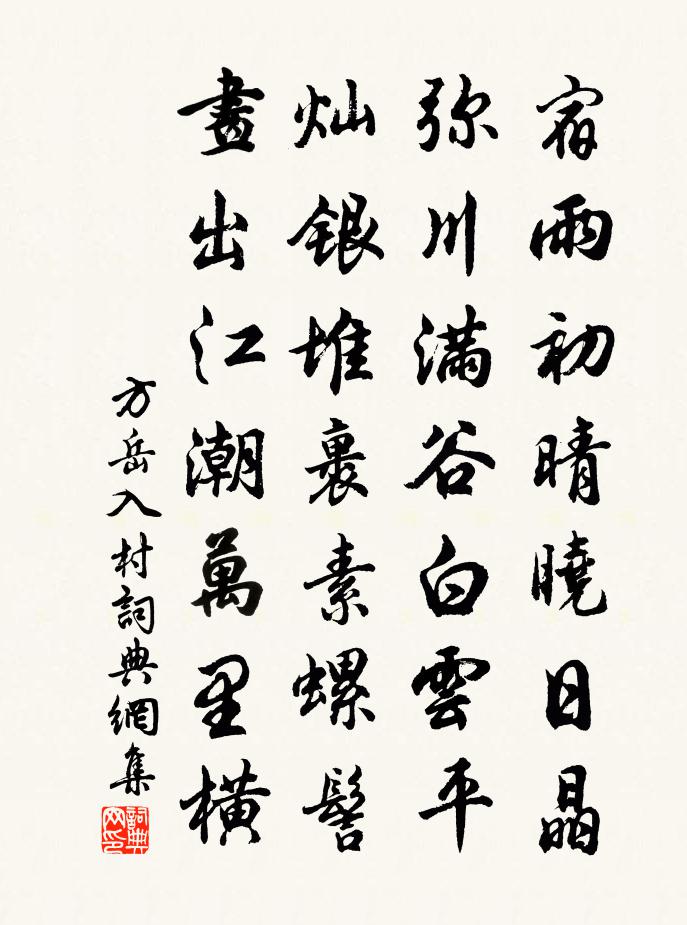 宿雨初晴曉日晶
弥川满谷白雲平
灿銀堆裹素螺髻
畫出江潮萬里横
方岳入村詞典網集
詞典網印